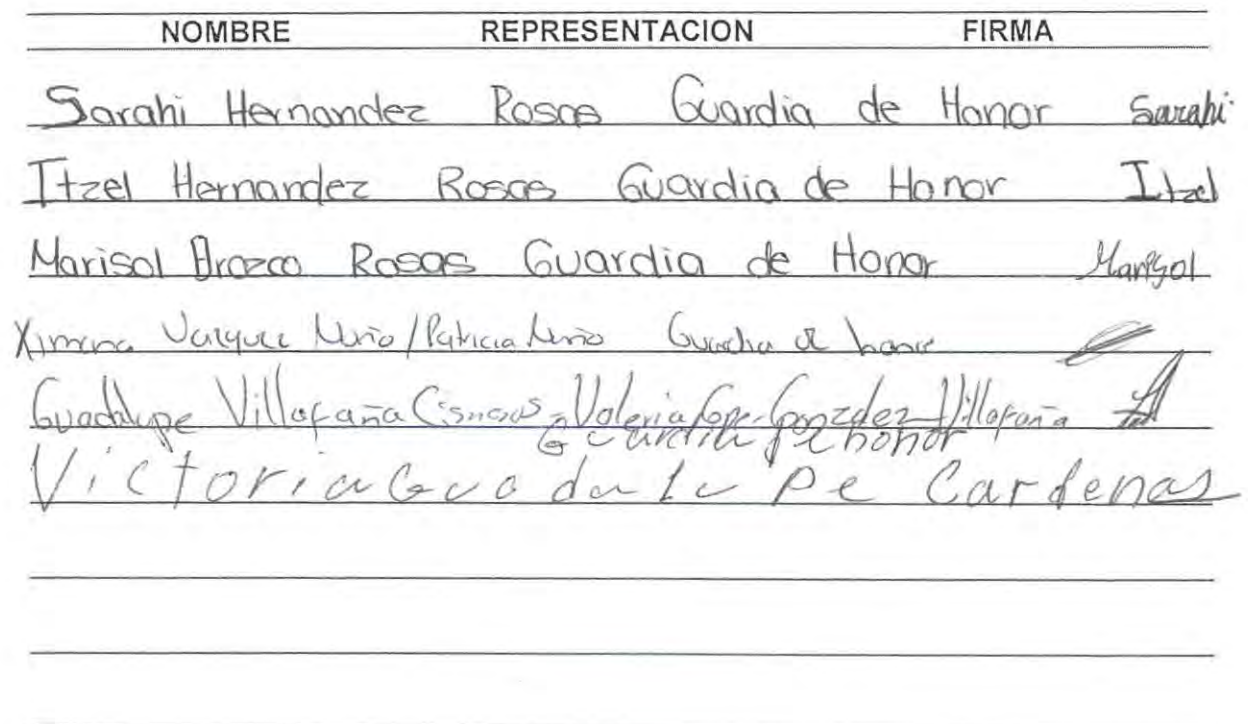 NOMBRE REPRESENTACION FIRMA
Sarahi Hernandez Rosas Guardia de Honor Sarahi
Itzel Hernandez Rosas Guardia de Honor Itzel
Marisol Orozco Rosas Guardia de Honor Marisol
Ximena Vazquez Nuño / Patricia Nuño Guardia de honor
Guadalupe Villafaña Cisneros - Valeria Gpe. Gonzalez Villafaña
Guardia de honor
Victoria Guadalupe Cardenas